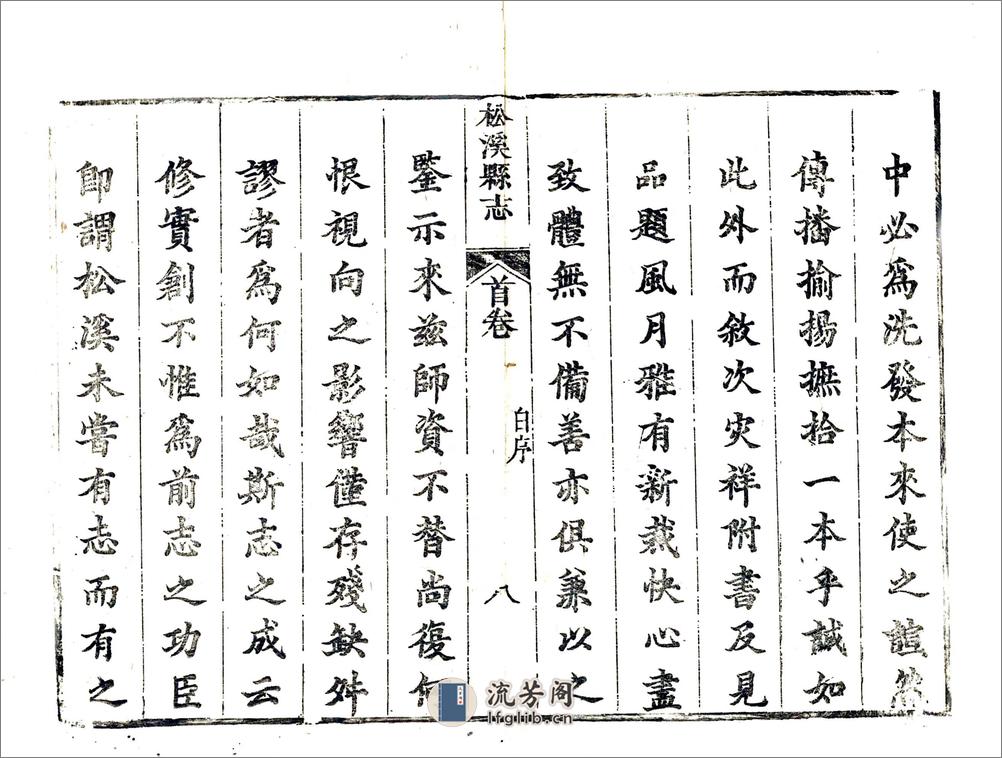 中必爲洗發本來使之諠然
傳播揄揚摭拾一本乎誠如
此外而敘次灾祥附書及見
品題風月雅有新裁快心盡
致體無不備善亦俱兼以之
松溪縣志
首卷
自序
八
鑒示來兹師資不替尚復何
恨視向之影響僅存殘缺舛
謬者爲何如哉斯志之成云
修實創不惟爲前志之功臣
卽謂松溪未嘗有志而有之
流芳阁
lfglib.cn